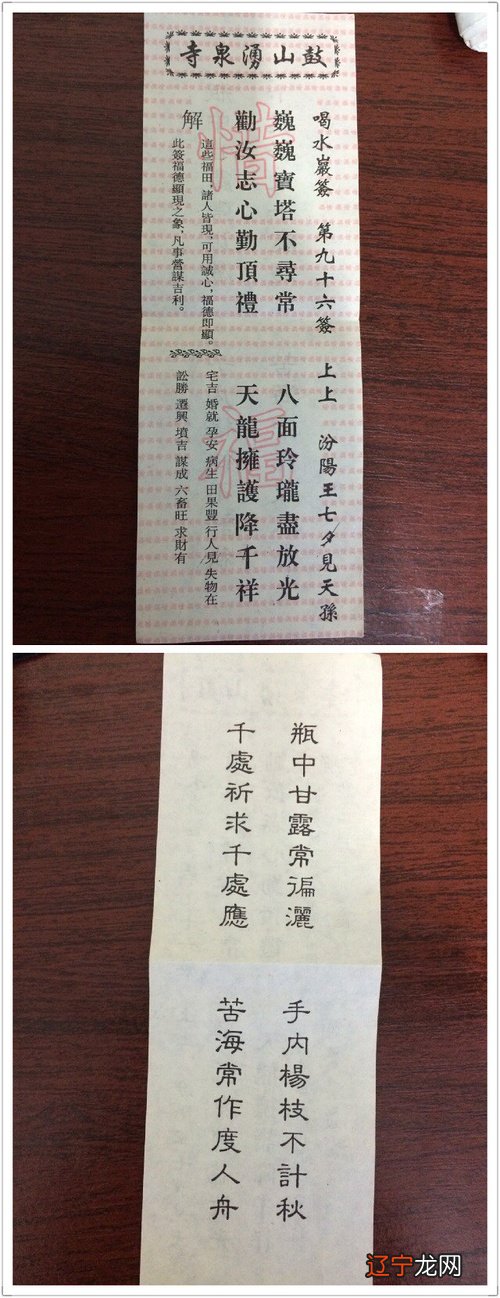 鼓山湧泉寺
喝水巖簽 第九十六簽 上上 汾陽王七夕見天孫
巍巍寶塔不尋常 八面玲瓏盡放光
勸汝志心勤頂禮 天龍擁護降千祥
惜福
解
這些福田，諸人皆現，可用誠心，福德即顯。
此簽福德顯現之象，凡事營謀吉利。
宅吉 婚就 孕安 病生 田果豐 行人見 失物在
訟勝 遷興 墳吉 謀成 六畜旺 求財有
瓶中甘露常徧灑 手內楊枝不計秋
千處祈求千處應 苦海常作度人舟
辽宁龙网